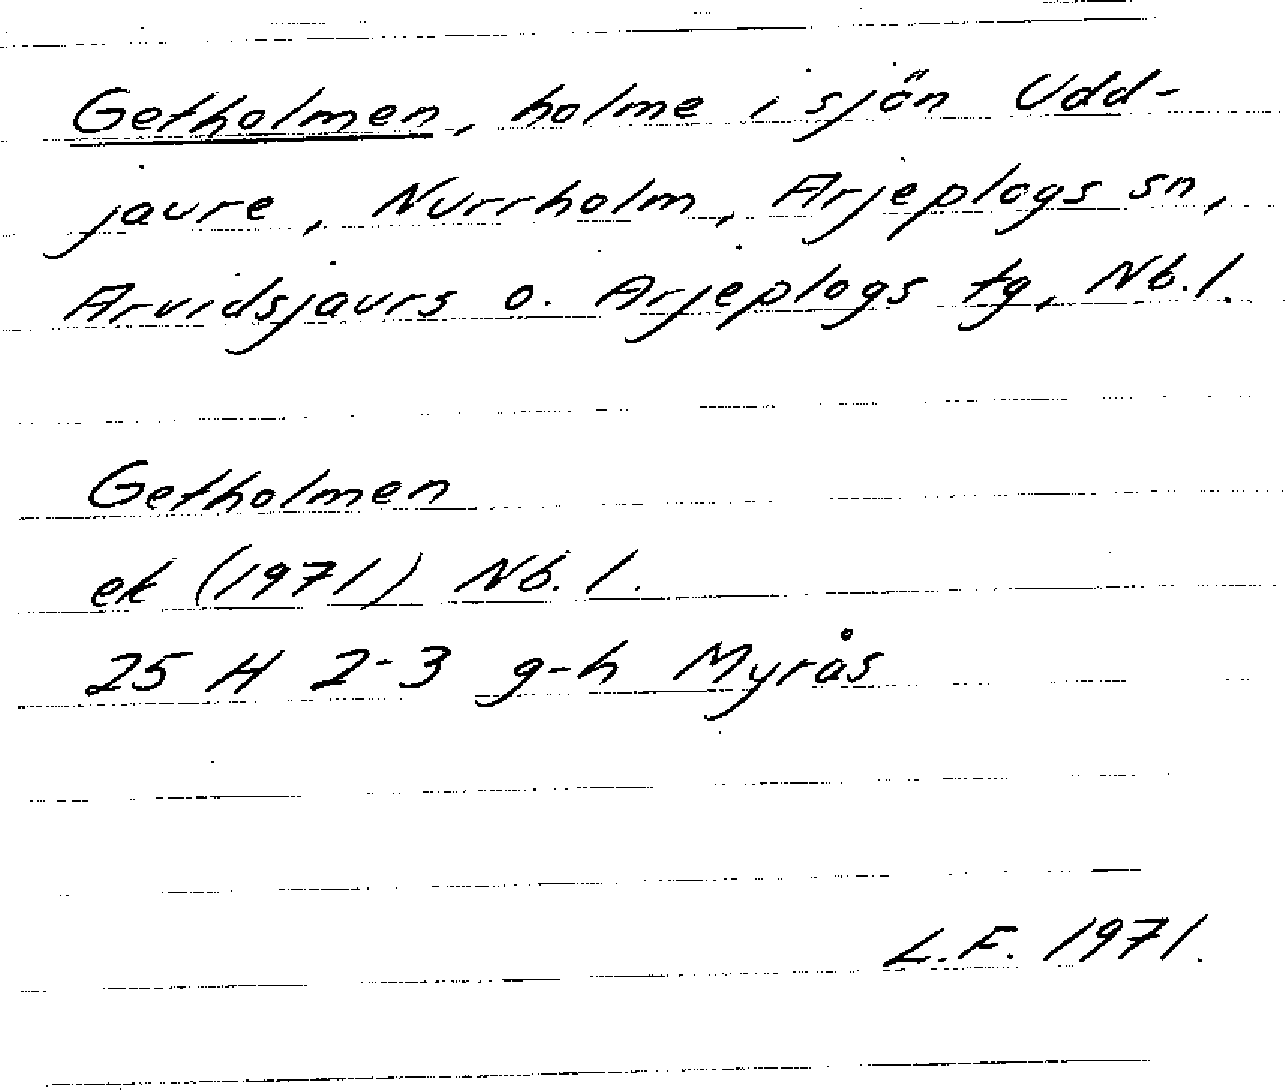 Getholmen, holme i sjön Udd-
jaure, Nurrholm, Arjeplogs sn,
Arvidsjaurs o. Arjeplogs tg, Nb.l.
Getholmen
ek (1971) Nb.l.
25 H 2-3 g-h Myrås
L.F. 1971.